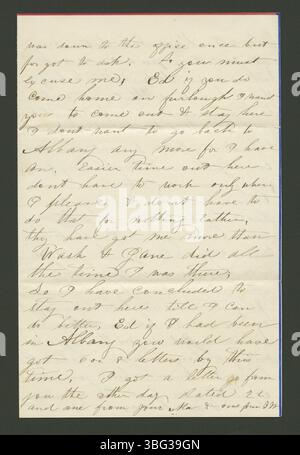 was down to the office once but
forgot to ask. So you must
excuse me, Ed if you do
come home on furlough I want
you to come out & stay here
I dont want to go back to
Albany any more for I have
an. Easier time out here
dont have to work only when
I please & dont have to
do that for nothing rather,
they have got me more than
Wash & Jane did all
the time I was there,
So I have concluded to
stay out here till I can
do better. Ed if I had been
in Albany you would have
got 2 or 3 letters by this
time, I got a letter from
you the other day dated 22
and one from your Ma & one from
alamy
Image ID: 3BG39GN
www.alamy.com